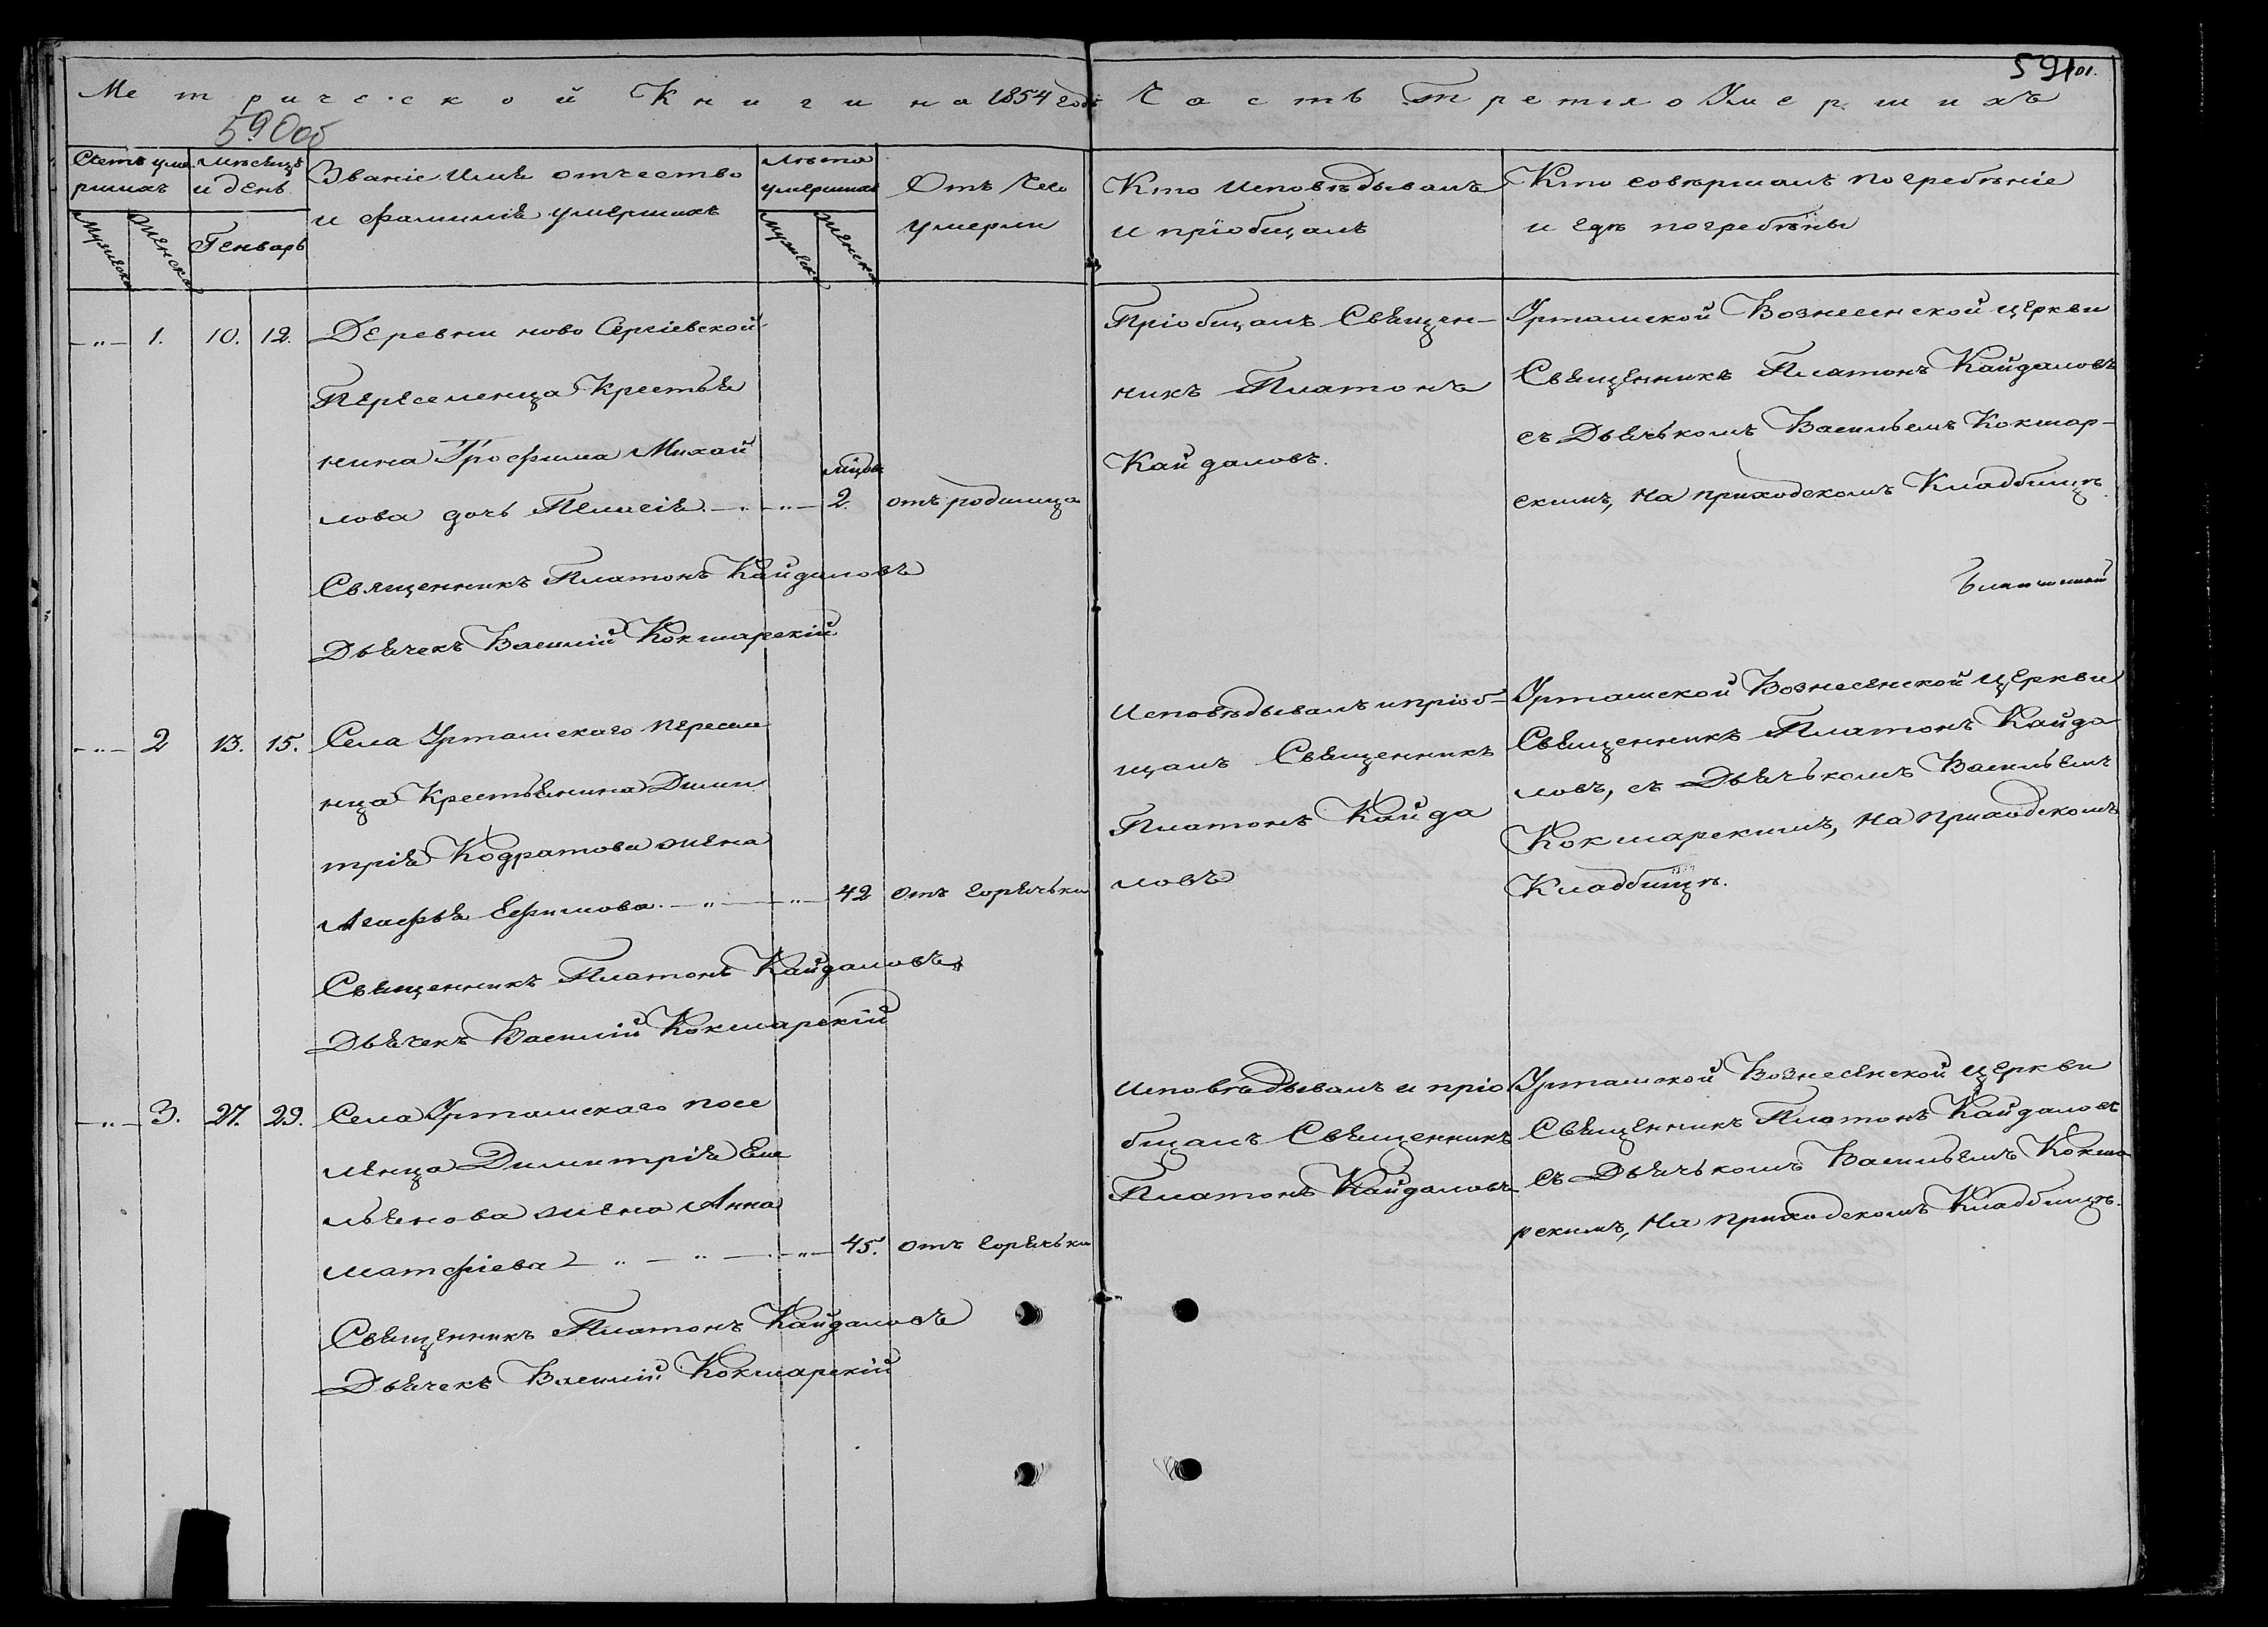 591
101.
Метрической Книги на 1854 годъ Часть Третія о Умершихъ
590об
Счетъ уме
ршихъ
Мѣсяцъ
и день.
Званіе Имя отчество
и фамилія умершихъ
Лѣта
умершихъ
Отъ Чего
умерли
Кто Исповѣдывалъ
и пріобщалъ
Кто совершалъ погребѣніе
и гдѣ погребѣны
Мужеска
Женска
Генварь
Мужеска
Женска
-"- 1. 10. 12. Деревни ново Сергіевской
Переселенца Крестья
нина Трофима Михай
лова дочь Пелагія. -"- мѣсяц. 2. отъ родимца
Священникъ Платонъ Кайдаловъ
Дьячекъ Василій Кокшарскій
Пріобщалъ Священ-
никъ Платонъ
Кайдаловъ.
Урташской Вознесенской церкви
Священникъ Платонъ Кайдаловъ
съ Дьячькомъ Васильемъ Кокшар-
скимъ, на приходскомъ Кладбищѣ.
-"- 2 13. 15. Села Урташскаго пересле
нца Крестьянина Дими
трія Кодратова жена
Агафья Ефимова. -"- -"- 42 Отъ Горячьки
Священникъ Платонъ Кайдаловъ
Дьячекъ Василій Кокшарскій
Исповѣдывалъ и пріоб-
щалъ Священникъ
Платонъ Кайда
ловъ
Урташской Вознесенской церкви
Священникъ Платонъ Кайда
ловъ, съ Дьячькомъ Васильемъ
Кокшарскимъ, на приходскомъ
Кладбищѣ.
-"- 3. 27. 29. Села Урташскаго посе
ленца Димитрія Еме
льянова жена Анна
матфіева -"- -"- -"- 45. отъ Горячьки
Священникъ Платонъ Кайдаловъ
Дьячекъ Василій Кокшарскій
Исповѣдывалъ и пріо
бщалъ Священникъ
Платонъ Кайдаловъ
Урташской Вознесенской церкви
Священникъ Платонъ Кайдаловъ
съ Дьячькомъ Васильемъ Кокша
рскимъ, на приходскомъ Кладбищѣ.